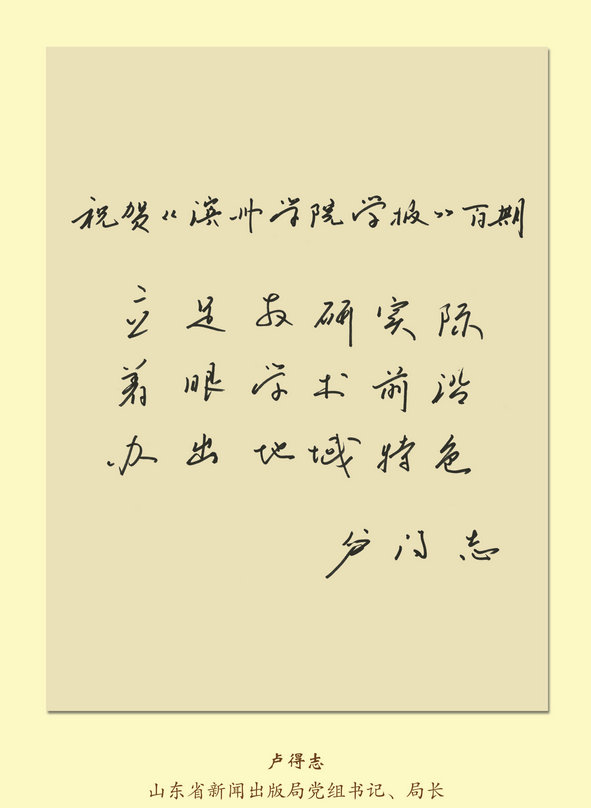 祝贺《滨州学院学报》百期
立足教研实际
着眼学术前沿
办出地域特色
卢得志
卢得志
山东省新闻出版局党组书记、局长